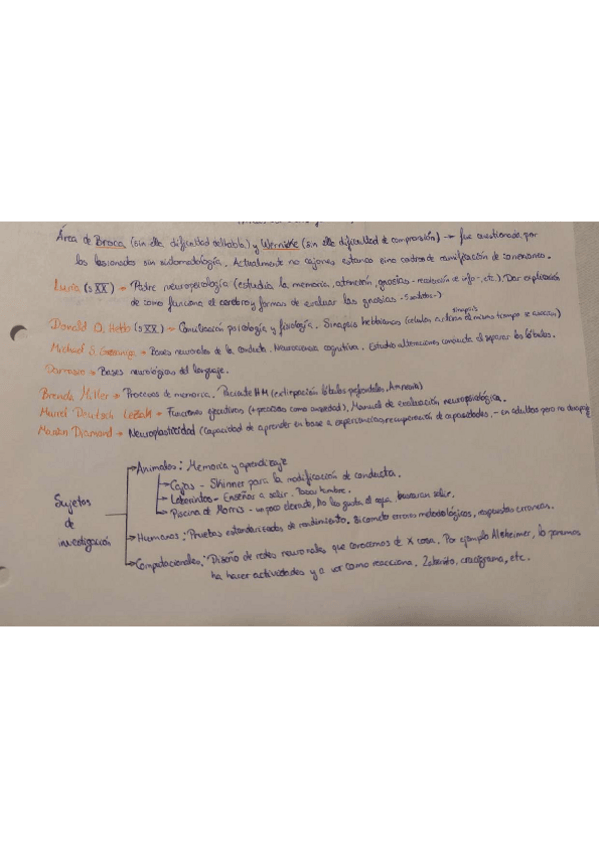 Área de Broca (sin ella dificultad del habla) y Wernicke (sin ella dificultad de comprensión) → fue cuestionado por
los lesionados sin sintomatología. Actualmente no cajones estancos sino cadenas de ramificación de conexiones.
Luria (s XX) → Padre neuropsicología (estudia la memoria, atención, gnosias - realización de info-, etc.). Dar explicación
de como funciona el cerebro y formas de evaluar las gnosias
Donald O. Hebb (s XX) → Conciliación psicología y fisiología. Sinapsis hebbianas (células activan al mismo tiempo se asocian)
sinapsis
Michael S. → Bases neuronales de la conducta. Neurociencia cognitiva. Estudia alteraciones conducta al separar los lóbulos.
Damasio → Bases neurológicas del lenguaje.
Brenda Miller → Procesos de memoria. Paciente HM (extirpación lóbulos Amnesia)
Muriel Deutsch Lezak → Funciones ejecutivas (+ procesos como ansiedad), Manual de evaluación neuropsicológica.
Marian Diamond → Neuroplasticidad (Capacidad de aprender en base a experiencias, recuperación de capacidades, - en adultos pero no
Sujetos
de
investigación
→ Animales: Memoria y aprendizaje
→ Cajas - Skinner para la modificación de conducta.
→ Laberintos - Enseñar a salir. Pasar hambre.
→ Piscina de Morris - un poco elevado, no les gusta el agua, buscarán salir.
→ Humanos: Pruebas estandarizadas de rendimiento. Si cometo errores metodológicos, respuestas erróneas.
→ Computacionales: Diseño de redes neuronales que conocemos de X cosa. Por ejemplo Alzheimer, lo ponemos
ha hacer actividades y a ver como reacciona. Laberinto, crucigrama, etc.